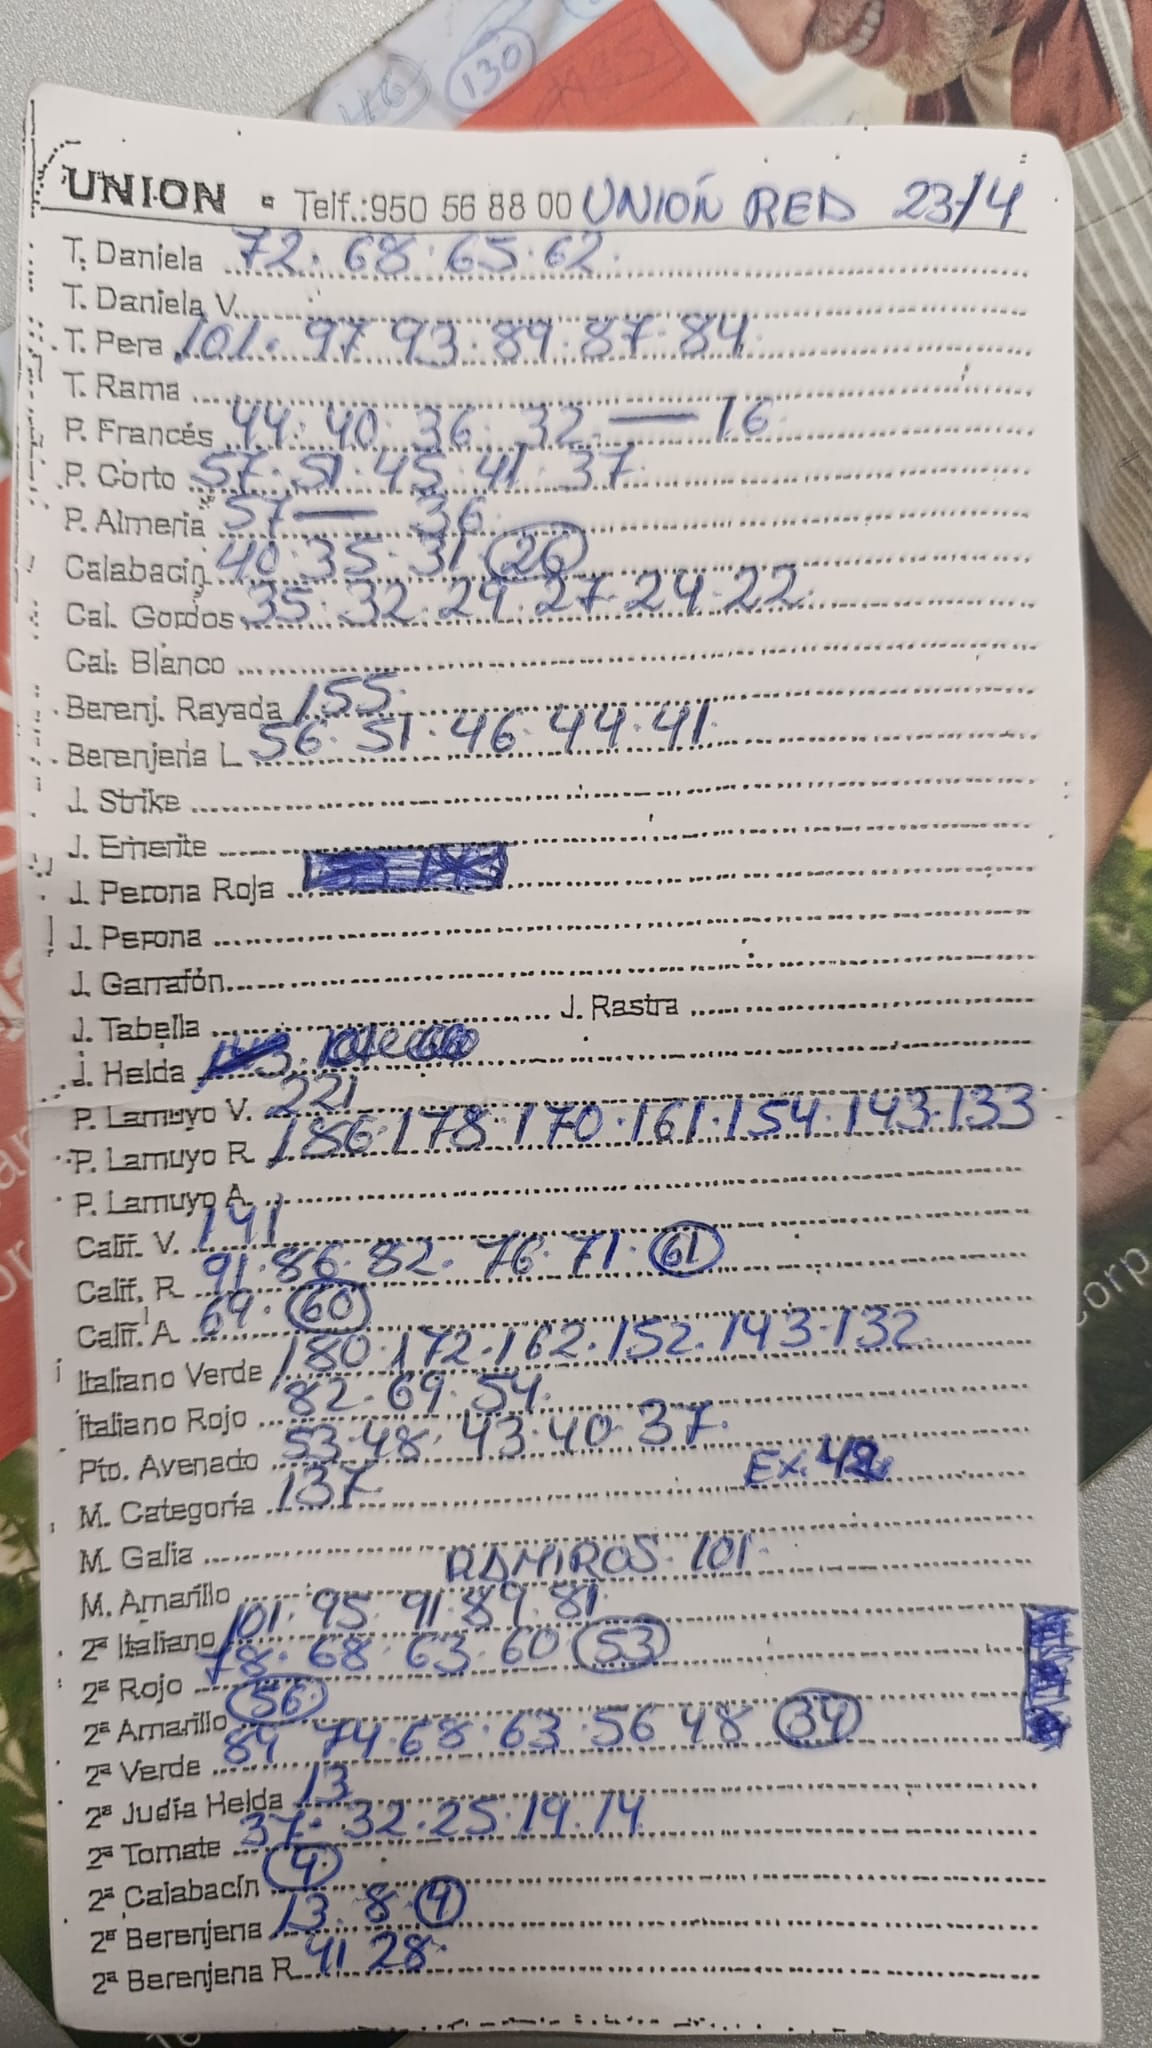 46 130
UNION - Telf.:950 56 88 00 UNIÓN RED 23/4
T. Daniela 72. 68. 65. 62.
T. Daniela V.
T. Pera 101. 97 93. 89. 87. 84.
T. Rama
P. Francés 44. 40. 36. 32. — 16.
P. Corto 57. 51. 45. 41. 37.
P. Almeria 57 — 36.
Calabacín 40. 35. 31. 26
Cal. Gordos 35. 32. 29. 27. 24. 22.
Cal. Blanco
Berenj. Rayada 155.
Berenjena L. 56. 51. 46. 44. 41.
J. Strike
J. Emerite
J. Perona Roja
J. Perona
J. Garrafón
J. Tabella J. Rastra
J. Helda
P. Lamuyo V. 221
P. Lamuyo R. 186. 178. 170. 161. 154. 143. 133
P. Lamuyo A.
Calif. V. 141
Calif. R. 91. 86. 82. 76. 71. 61
Calif. A. 69. 60
Italiano Verde 180. 172. 162. 152. 143. 132.
Italiano Rojo 82. 69. 54.
Pto. Avenado 53. 48. 43. 40. 37.
M. Categoría 137. Ex. 42.
M. Galia RAMIROS. 101.
M. Amarillo 101. 95. 91. 89. 81.
2ª Italiano 78. 68. 63. 60 53
2ª Rojo 56.
2ª Amarillo 89 74. 68. 63. 56 48 34
2ª Verde
2ª Judía Helda 13
2ª Tomate 37. 32. 25. 19. 14.
2ª Calabacín 4.
2ª Berenjena 13. 8. 4
2ª Berenjena R. 41 28.
corp